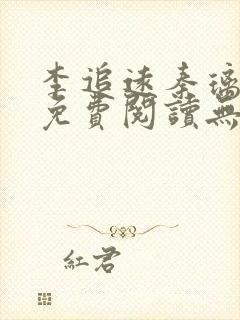 李追遠秦璃
免費閱讀無
紅君